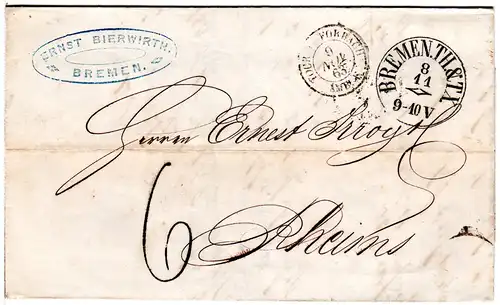 ERNST BIERWIRTH.
BREMEN.
FORBACH
9
NOV.
65
BREMEN. TH & TX
8
11
9-10 V
Herrn Ernest
6
Rheims